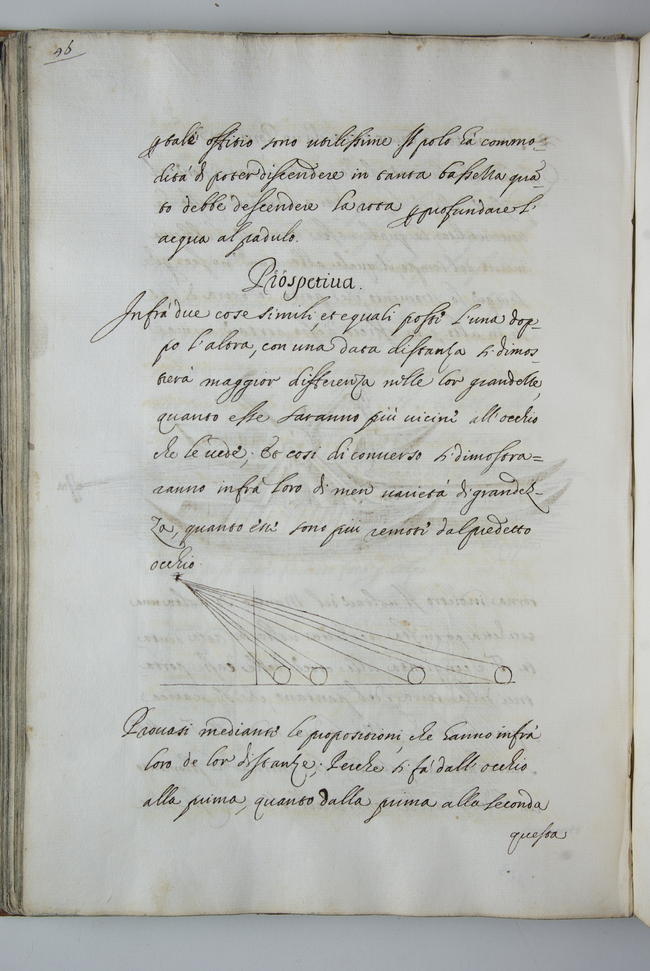 46
ꝑ tale offitio sono utilissime Il polo hà commo-
dità di poter discendere in tanta bassezza quā-
to debbe descendere la rota ꝑ profundare l'
acqua al padulo.
Prospetiva.
Infrà due cose simili, et equali posti l'una dop-
po l'altra, con una data distanza si dimos-
trerà maggior differenza nelle lor grandezze,
quanto esse saranno più vicini all'occhio
che le vede; Et così di converso si dimostra=
ranno infrà loro di men varietà di grandez-
za, quanto essi sono più remoti dal predetto
occhio.
Provasi medianti le proporzioni, che hanno infrà
loro de lor distanze; Perche si fà dall'occhio
alla prima, quanto dalla prima alla seconda
questa